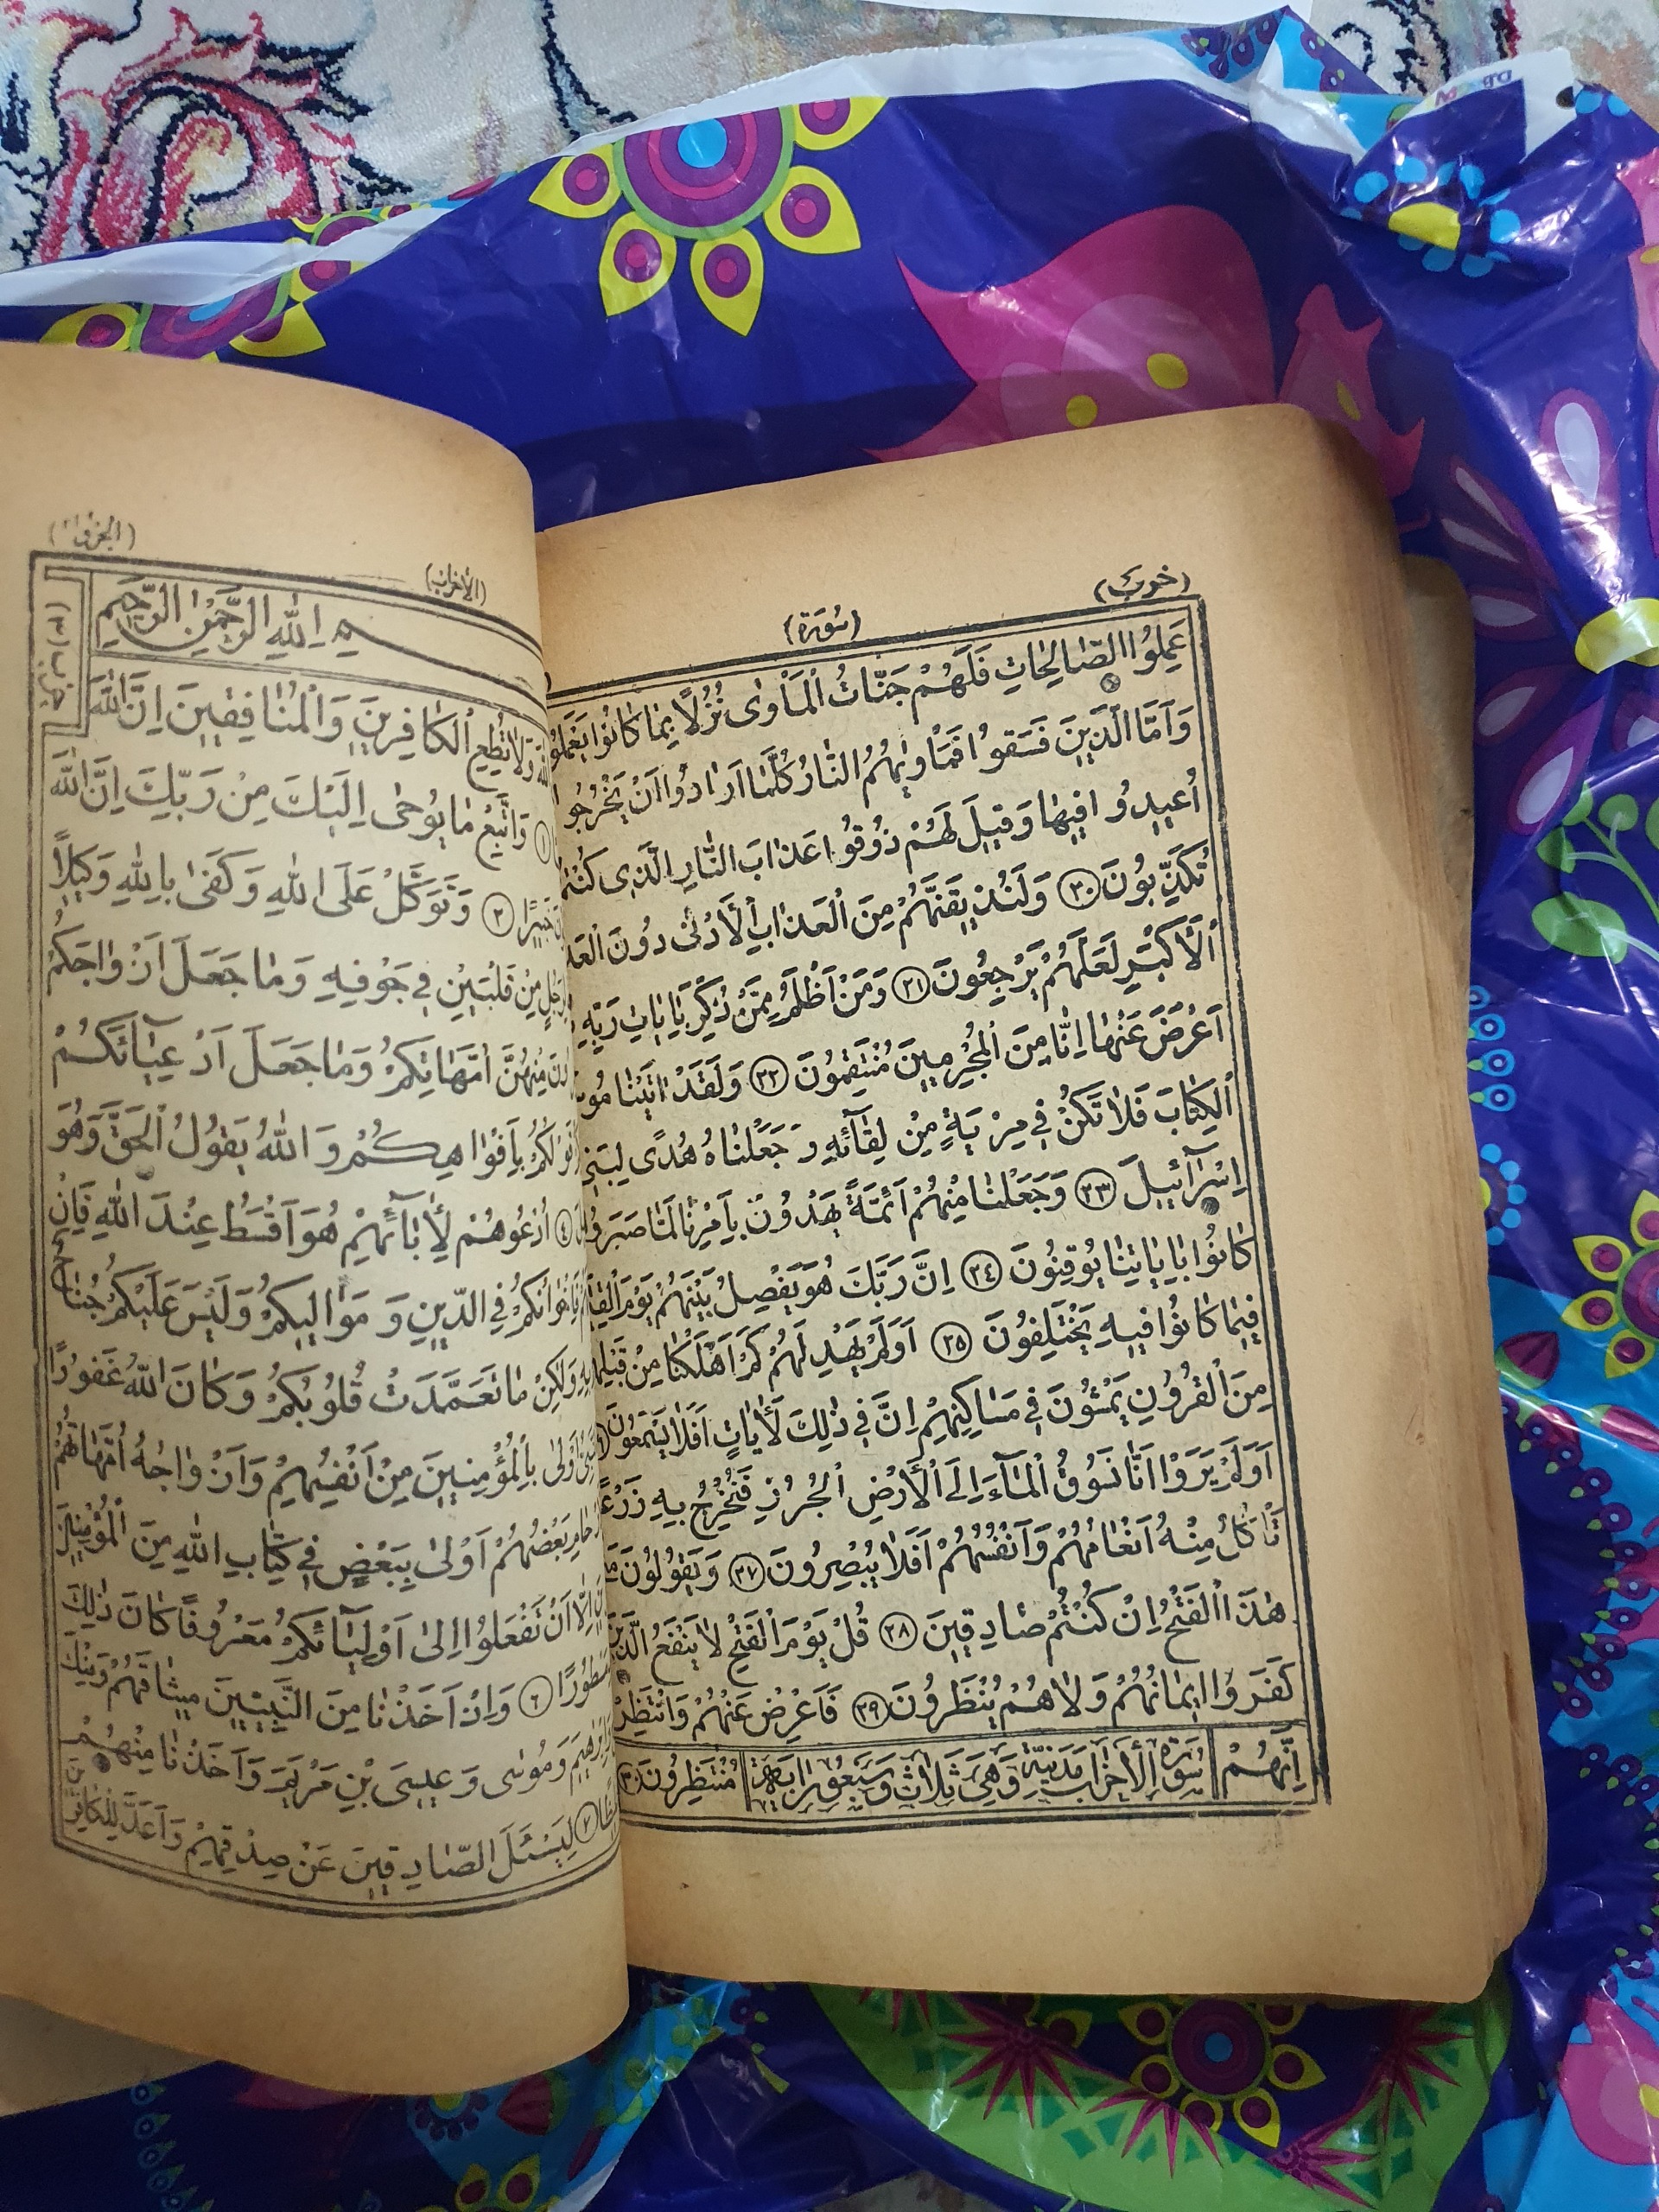 (سُورَة)
عَمِلُوا الصّٰالِحٰاتِ فَلَهُمْ جَنّٰاتُ الْمَأْوٰى نُزُلًا بِمٰا كٰانُوا يَعْمَلُونَ
وَاَمَّا الَّذِينَ فَسَقُوا فَمَأْوٰيهُمُ النّٰارُ كُلَّمٰا اَرٰادُوا اَنْ يَخْرُجُوا
اُعِيدُوا فِيهٰا وَقِيلَ لَهُمْ ذُوقُوا عَذٰابَ النّٰارِ الَّذِى كُنْتُمْ
تُكَذِّبُونَ ٢٠ وَلَنُذِيقَنَّهُمْ مِنَ الْعَذٰابِ الْأَدْنٰى دُونَ
الْأَكْبَرِ لَعَلَّهُمْ يَرْجِعُونَ ٢١ وَمَنْ اَظْلَمُ مِمَّنْ ذُكِّرَ بِاٰيٰاتِ رَبِّهِ
اَعْرَضَ عَنْهٰا اِنّٰا مِنَ الْمُجْرِمِينَ مُنْتَقِمُونَ ٢٢ وَلَقَدْ اٰتَيْنٰا
الْكِتٰابَ فَلٰا تَكُنْ فِي مِرْيَةٍ مِنْ لِقٰآئِهِ وَجَعَلْنٰاهُ هُدًى لِبَنِي
اِسْرٰآئِيلَ ٢٣ وَجَعَلْنٰا مِنْهُمْ اَئِمَّةً يَهْدُونَ بِاَمْرِنٰا لَمّٰا صَبَرُوا
كٰانُوا بِاٰيٰاتِنٰا يُوقِنُونَ ٢٤ اِنَّ رَبَّكَ هُوَ يَفْصِلُ بَيْنَهُمْ يَوْمَ
فِيمٰا كٰانُوا فِيهِ يَخْتَلِفُونَ ٢٥ اَوَلَمْ يَهْدِ لَهُمْ كَمْ اَهْلَكْنٰا مِنْ قَبْلِهِمْ
مِنَ الْقُرُونِ يَمْشُونَ فِي مَسٰاكِنِهِمْ اِنَّ فِي ذٰلِكَ لَأٰيٰاتٍ اَفَلٰا يَسْمَعُونَ
اَوَلَمْ يَرَوْا اَنّٰا نَسُوقُ الْمٰآءَ اِلَى الْأَرْضِ الْجُرُزِ فَنُخْرِجُ بِهِ زَرْعًا
تَأْكُلُ مِنْهُ اَنْعٰامُهُمْ وَاَنْفُسُهُمْ اَفَلٰا يُبْصِرُونَ ٢٧ وَيَقُولُونَ
هٰذَا الْفَتْحُ اِنْ كُنْتُمْ صٰادِقِينَ ٢٨ قُلْ يَوْمَ الْفَتْحِ لٰا يَنْفَعُ الَّذِينَ
كَفَرُوا اِيمٰانُهُمْ وَلٰا هُمْ يُنْظَرُونَ ٢٩ فَاَعْرِضْ عَنْهُمْ وَانْتَظِرْ
اِنَّهُمْ سُورَةُ الْأَحْزٰابِ مَدَنِيَّةٌ وَهِيَ ثَلٰاثٌ وَسَبْعُونَ اٰيَةً مُنْتَظِرُونَ ٣٠
(الْأَحْزٰاب)
بِسْمِ اللّٰهِ الرَّحْمٰنِ الرَّحِيمِ
وَلٰا تُطِعِ الْكٰافِرِينَ وَالْمُنٰافِقِينَ اِنَّ اللّٰهَ
١ وَاتَّبِعْ مٰا يُوحٰى اِلَيْكَ مِنْ رَبِّكَ اِنَّ اللّٰهَ
خَبِيرًا ٢ وَتَوَكَّلْ عَلَى اللّٰهِ وَكَفٰى بِاللّٰهِ وَكِيلًا
لِرَجُلٍ مِنْ قَلْبَيْنِ فِي جَوْفِهِ وَمٰا جَعَلَ اَزْوٰاجَكُمُ
مِنْهُنَّ اُمَّهٰاتِكُمْ وَمٰا جَعَلَ اَدْعِيٰآئَكُمْ
قَوْلُكُمْ بِاَفْوٰاهِكُمْ وَاللّٰهُ يَقُولُ الْحَقَّ وَهُوَ
٤ اُدْعُوهُمْ لِأٰبٰآئِهِمْ هُوَ اَقْسَطُ عِنْدَ اللّٰهِ فَاِنْ
فَاِخْوٰانُكُمْ فِي الدِّينِ وَمَوٰالِيكُمْ وَلَيْسَ عَلَيْكُمْ جُنٰاحٌ
بِهِ وَلٰكِنْ مٰا تَعَمَّدَتْ قُلُوبُكُمْ وَكٰانَ اللّٰهُ غَفُورًا
اَوْلٰى بِالْمُؤْمِنِينَ مِنْ اَنْفُسِهِمْ وَاَزْوٰاجُهُ اُمَّهٰاتُهُمْ
بَعْضُهُمْ اَوْلٰى بِبَعْضٍ فِي كِتٰابِ اللّٰهِ مِنَ الْمُؤْمِنِينَ
اِلّٰا اَنْ تَفْعَلُوا اِلٰى اَوْلِيٰآئِكُمْ مَعْرُوفًا كٰانَ ذٰلِكَ
مَسْطُورًا ٦ وَاِذْ اَخَذْنٰا مِنَ النَّبِيِّينَ مِيثٰاقَهُمْ وَمِنْكَ
اِبْرٰهِيمَ وَمُوسٰى وَعِيسَى بْنِ مَرْيَمَ وَاَخَذْنٰا مِنْهُمْ
٧ لِيَسْئَلَ الصّٰادِقِينَ عَنْ صِدْقِهِمْ وَاَعَدَّ لِلْكٰافِرِينَ